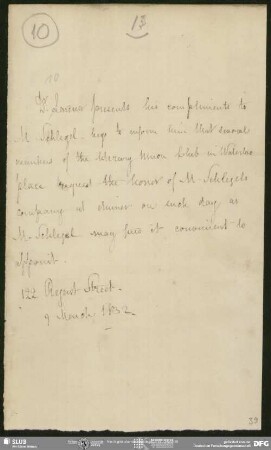 10
13
10
presents his compliments to
M Schlegel. begs to inform him that several
members of the Literary Union Club in Waterloo
place request the honor of M Schlegels
company at dinner on such day as
M. Schlegel may find it convenient to
appoint.
122 Regent Street.
9 March 1832.
SLUB
DFG